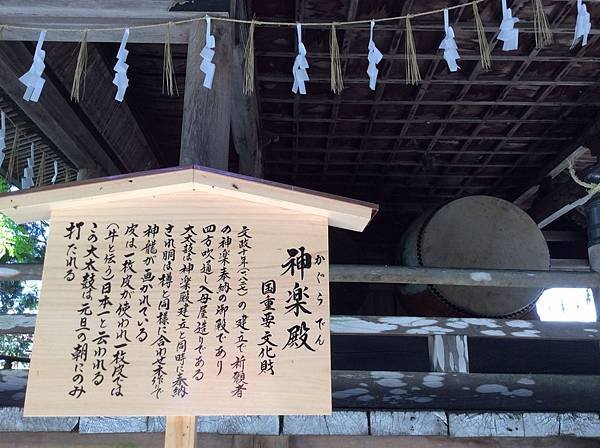 かぐらでん
神楽殿
国重要文化財
文政十年(一八二七)の建立で祈願者
の神楽奉納の御殿であり
四方吹通し母屋造りである
大太鼓は神楽殿建立と同時に奉納
され胴は樽と同様に合わせ木作で
神龍が画かれている
皮は一枚皮が使われ一枚皮では
(牛と伝う)日本一と云われる
この大太鼓は元旦の朝にのみ
打たれる